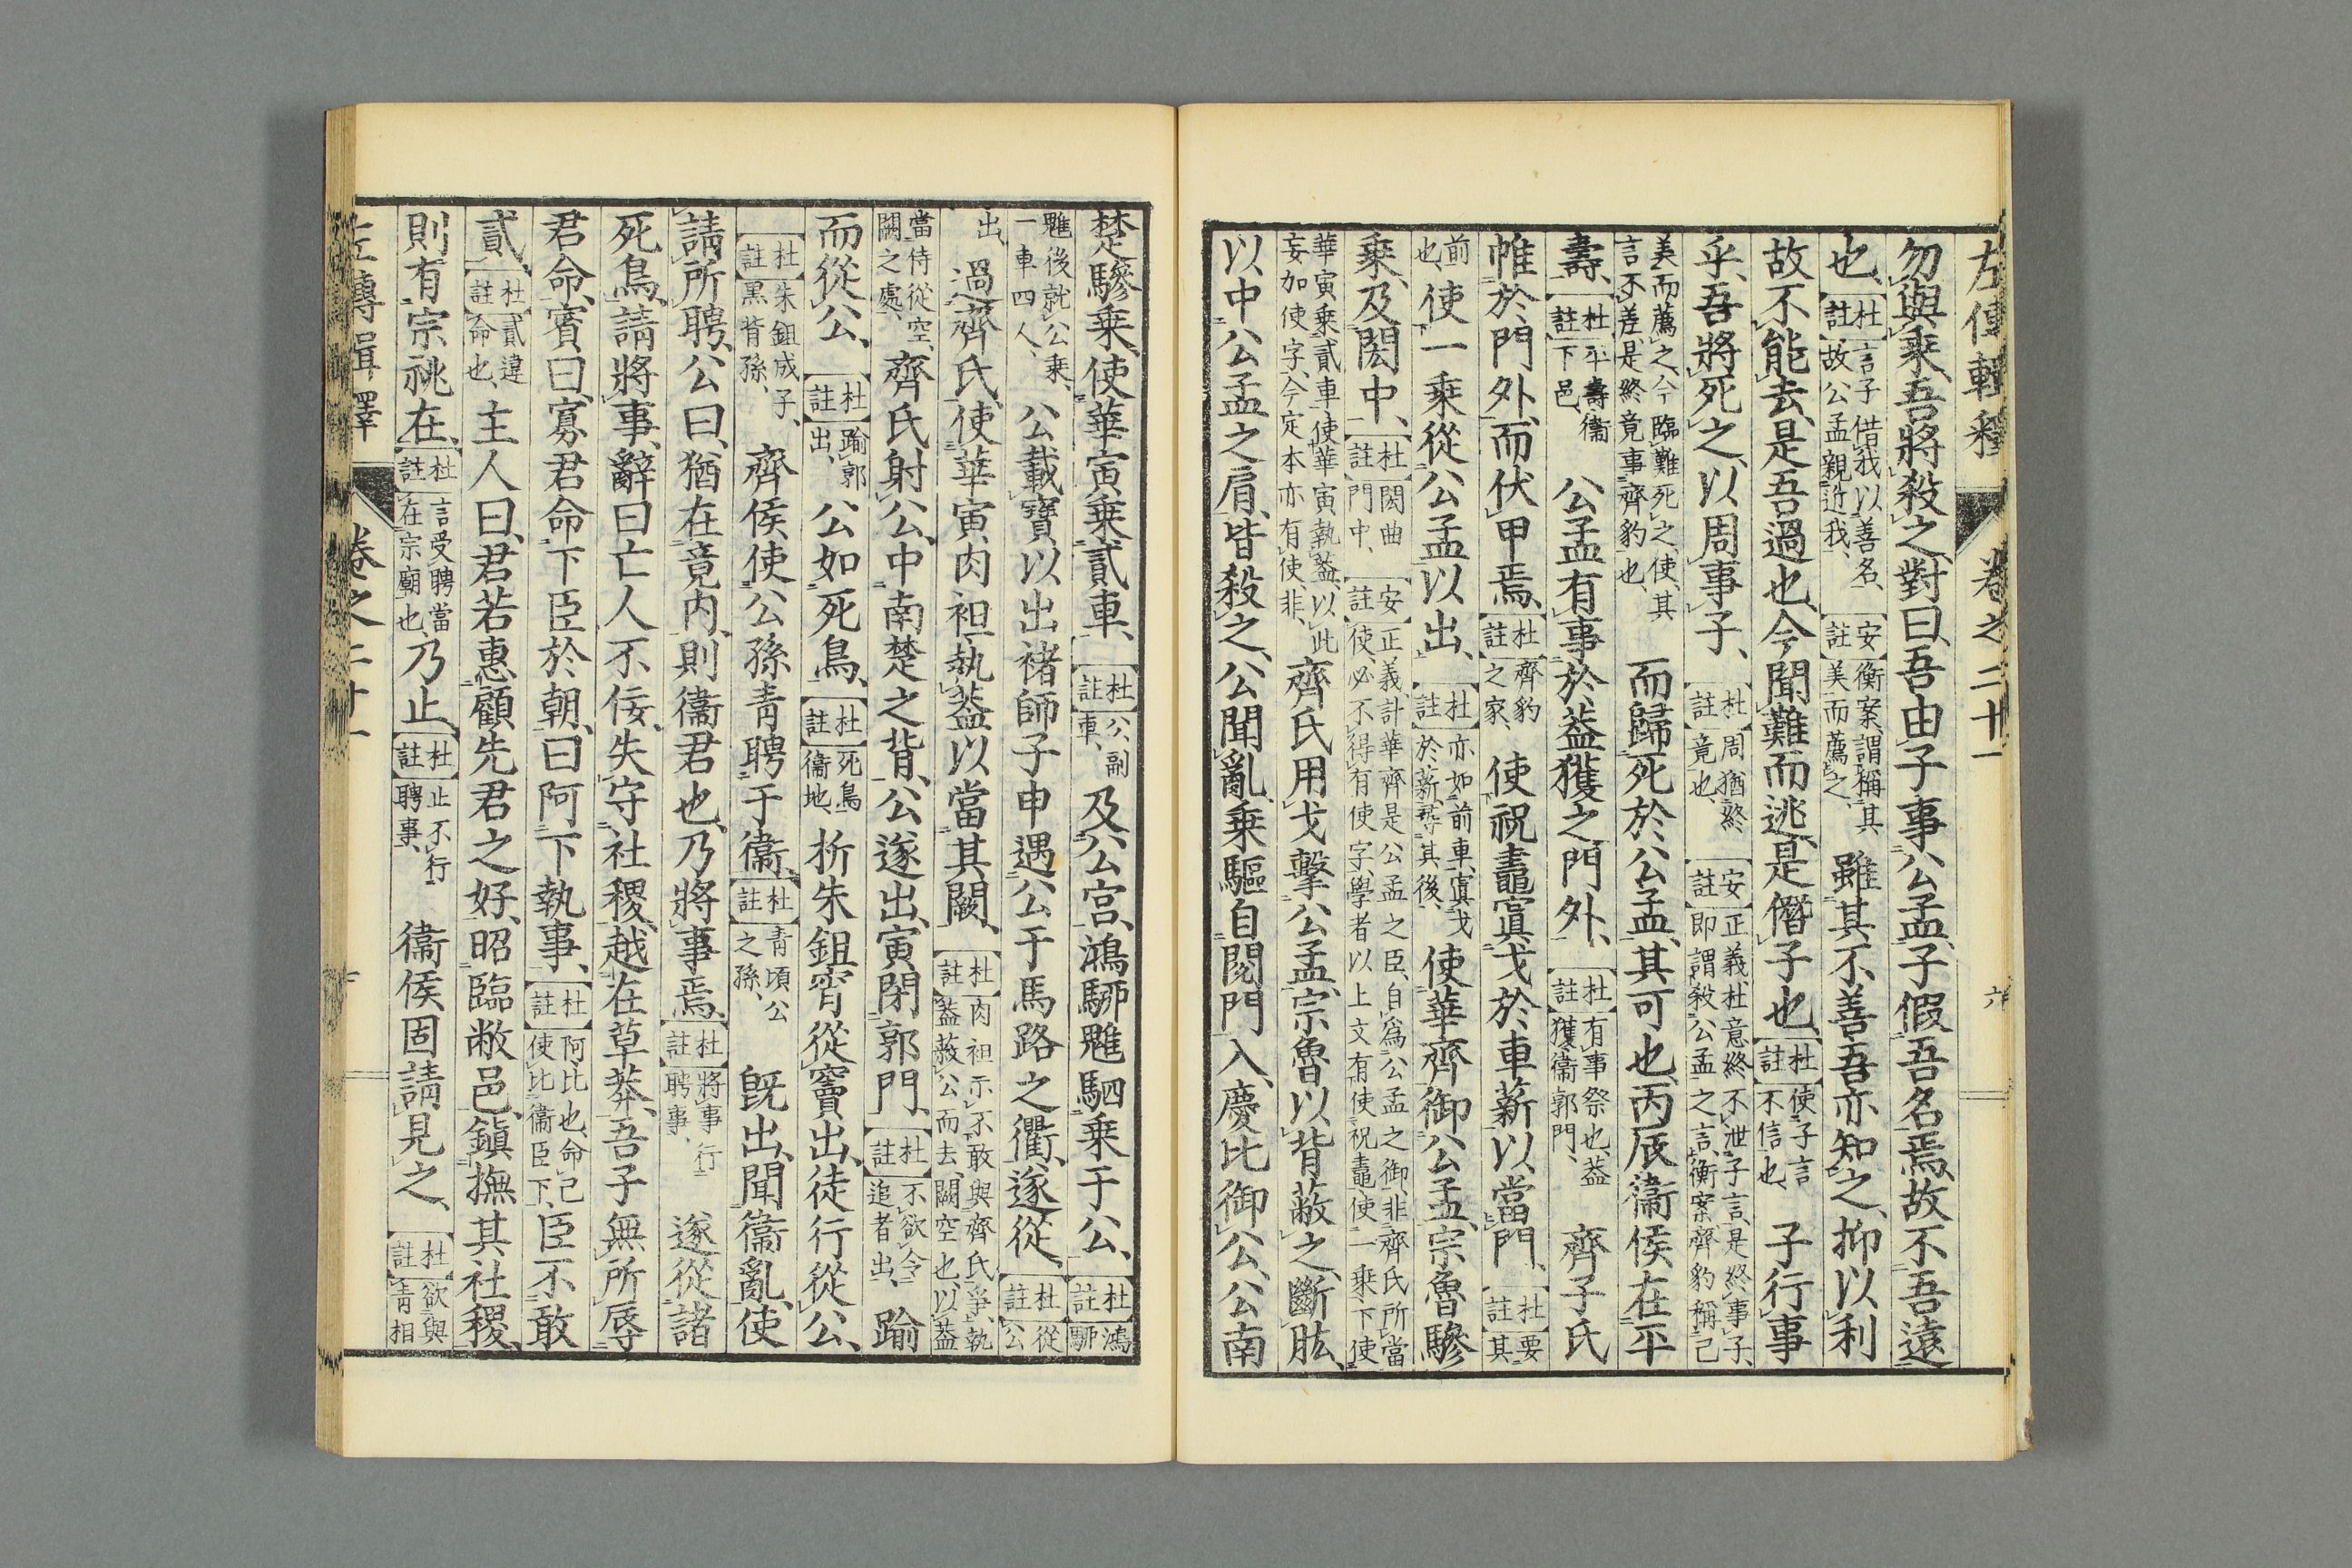 左傳輯釋 卷之二十一 六
勿與乘、吾將殺之、對曰、吾由子事公孟、子假吾名焉、故不吾遠
也、杜註言子借我以善名、故公孟親近我、安註衡案、謂稱其美而薦之、雖其不善、吾亦知之、抑以利
故不能去、是吾過也、今聞難而逃、是僭子也、杜註使子言不信也、子行事
乎、吾將死之、以周事子、杜註周猶終竟也、安註正義、杜意終不泄子言、是終事子、即謂殺公孟之言、衡案、齊豹稱己
美而薦之、今臨難死之、使其言不差、是終竟事齊豹也、而歸死於公孟、其可也、丙辰、衞侯在平
壽、杜註平壽衞下邑、公孟有事於蓋獲之門外、杜註有事祭也、蓋獲衞郭門、齊子氏
帷於門外、而伏甲焉、杜註齊豹之家、使祝鼃寘戈於車薪以當門、杜註要其
前也、使一乘從公孟以出、杜註亦如前車、寘戈於薪、尋其後、使華齊御公孟、宗魯驂
乘、及閎中、杜註閎曲門中、安註正義、計華齊是公孟之臣、自爲公孟之御、非齊氏所當使、必不得有使字、學者以上文有使祝鼃、使一乘、下使
華寅乘貳車、使華寅執蓋、以此妄加使字、今定本亦有使、非、齊氏用戈擊公孟、宗魯以背蔽之、斷肱、
以中公孟之肩、皆殺之、公聞亂、乘驅自閱門入、慶比御公、公南
楚驂乘、使華寅乘貳車、杜註公副車、及公宮、鴻駵魋駟乘于公、杜註鴻駵
魋後就公乘、一車四人、公載寶以出、褚師子申遇公于馬路之衢、遂從、杜註從公
出、過齊氏、使華寅肉袒執蓋、以當其闕、杜註肉袒示不敢與齊氏爭、執蓋蔽公而去、闕空也、以蓋
當侍從空闕之處、齊氏射公、中南楚之背、公遂出、寅閉郭門、杜註不欲令追者出、踰
而從公、杜註踰郭出、公如死鳥、杜註死鳥衞地、析朱鉏宵從竇出、徒行從公、
杜註朱鉏成子、黑背孫、齊侯使公孫青聘于衞、杜註青頃公之孫、既出、聞衞亂、使
請所聘、公曰、猶在竟內、則衞君也、乃將事焉、杜註將事行聘事、遂從諸
死鳥、請將事、辭曰、亡人不佞、失守社稷、越在草莽、吾子無所辱
君命、賓曰、寡君命下臣於朝、曰阿下執事、杜註阿比也、命己使比衞臣下、臣不敢
貳、杜註貳違命也、主人曰、君若惠顧先君之好、昭臨敝邑、鎮撫其社稷、
則有宗祧在、杜註言受聘當在宗廟也、乃止、杜註止不行聘事、衞侯固請見之、杜註欲與青相
左傳輯釋 卷之二十一